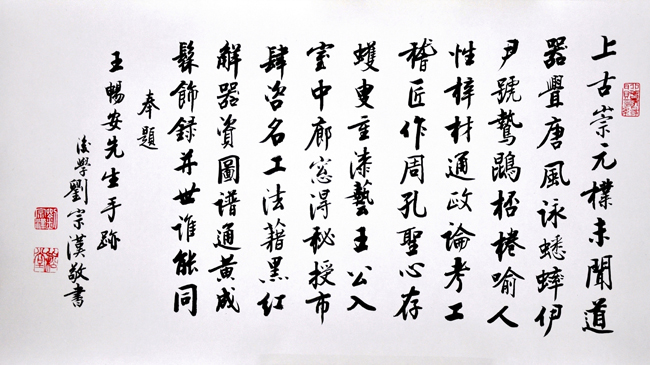 上古崇元樸未聞道
器釁唐風詠蟋蟀伊
尹號鷙鵾桮棬喻人
性梓材通政論考工
稽匠作周孔聖心存
蠖叟重漆藝王公入
室中廊窓得秘授市
肆咨名工法籍黑红
解器資圖谱通黄成
髹飾録并世谁能同
奉題
王暢安先生手跡
後學劉宗漢敬書